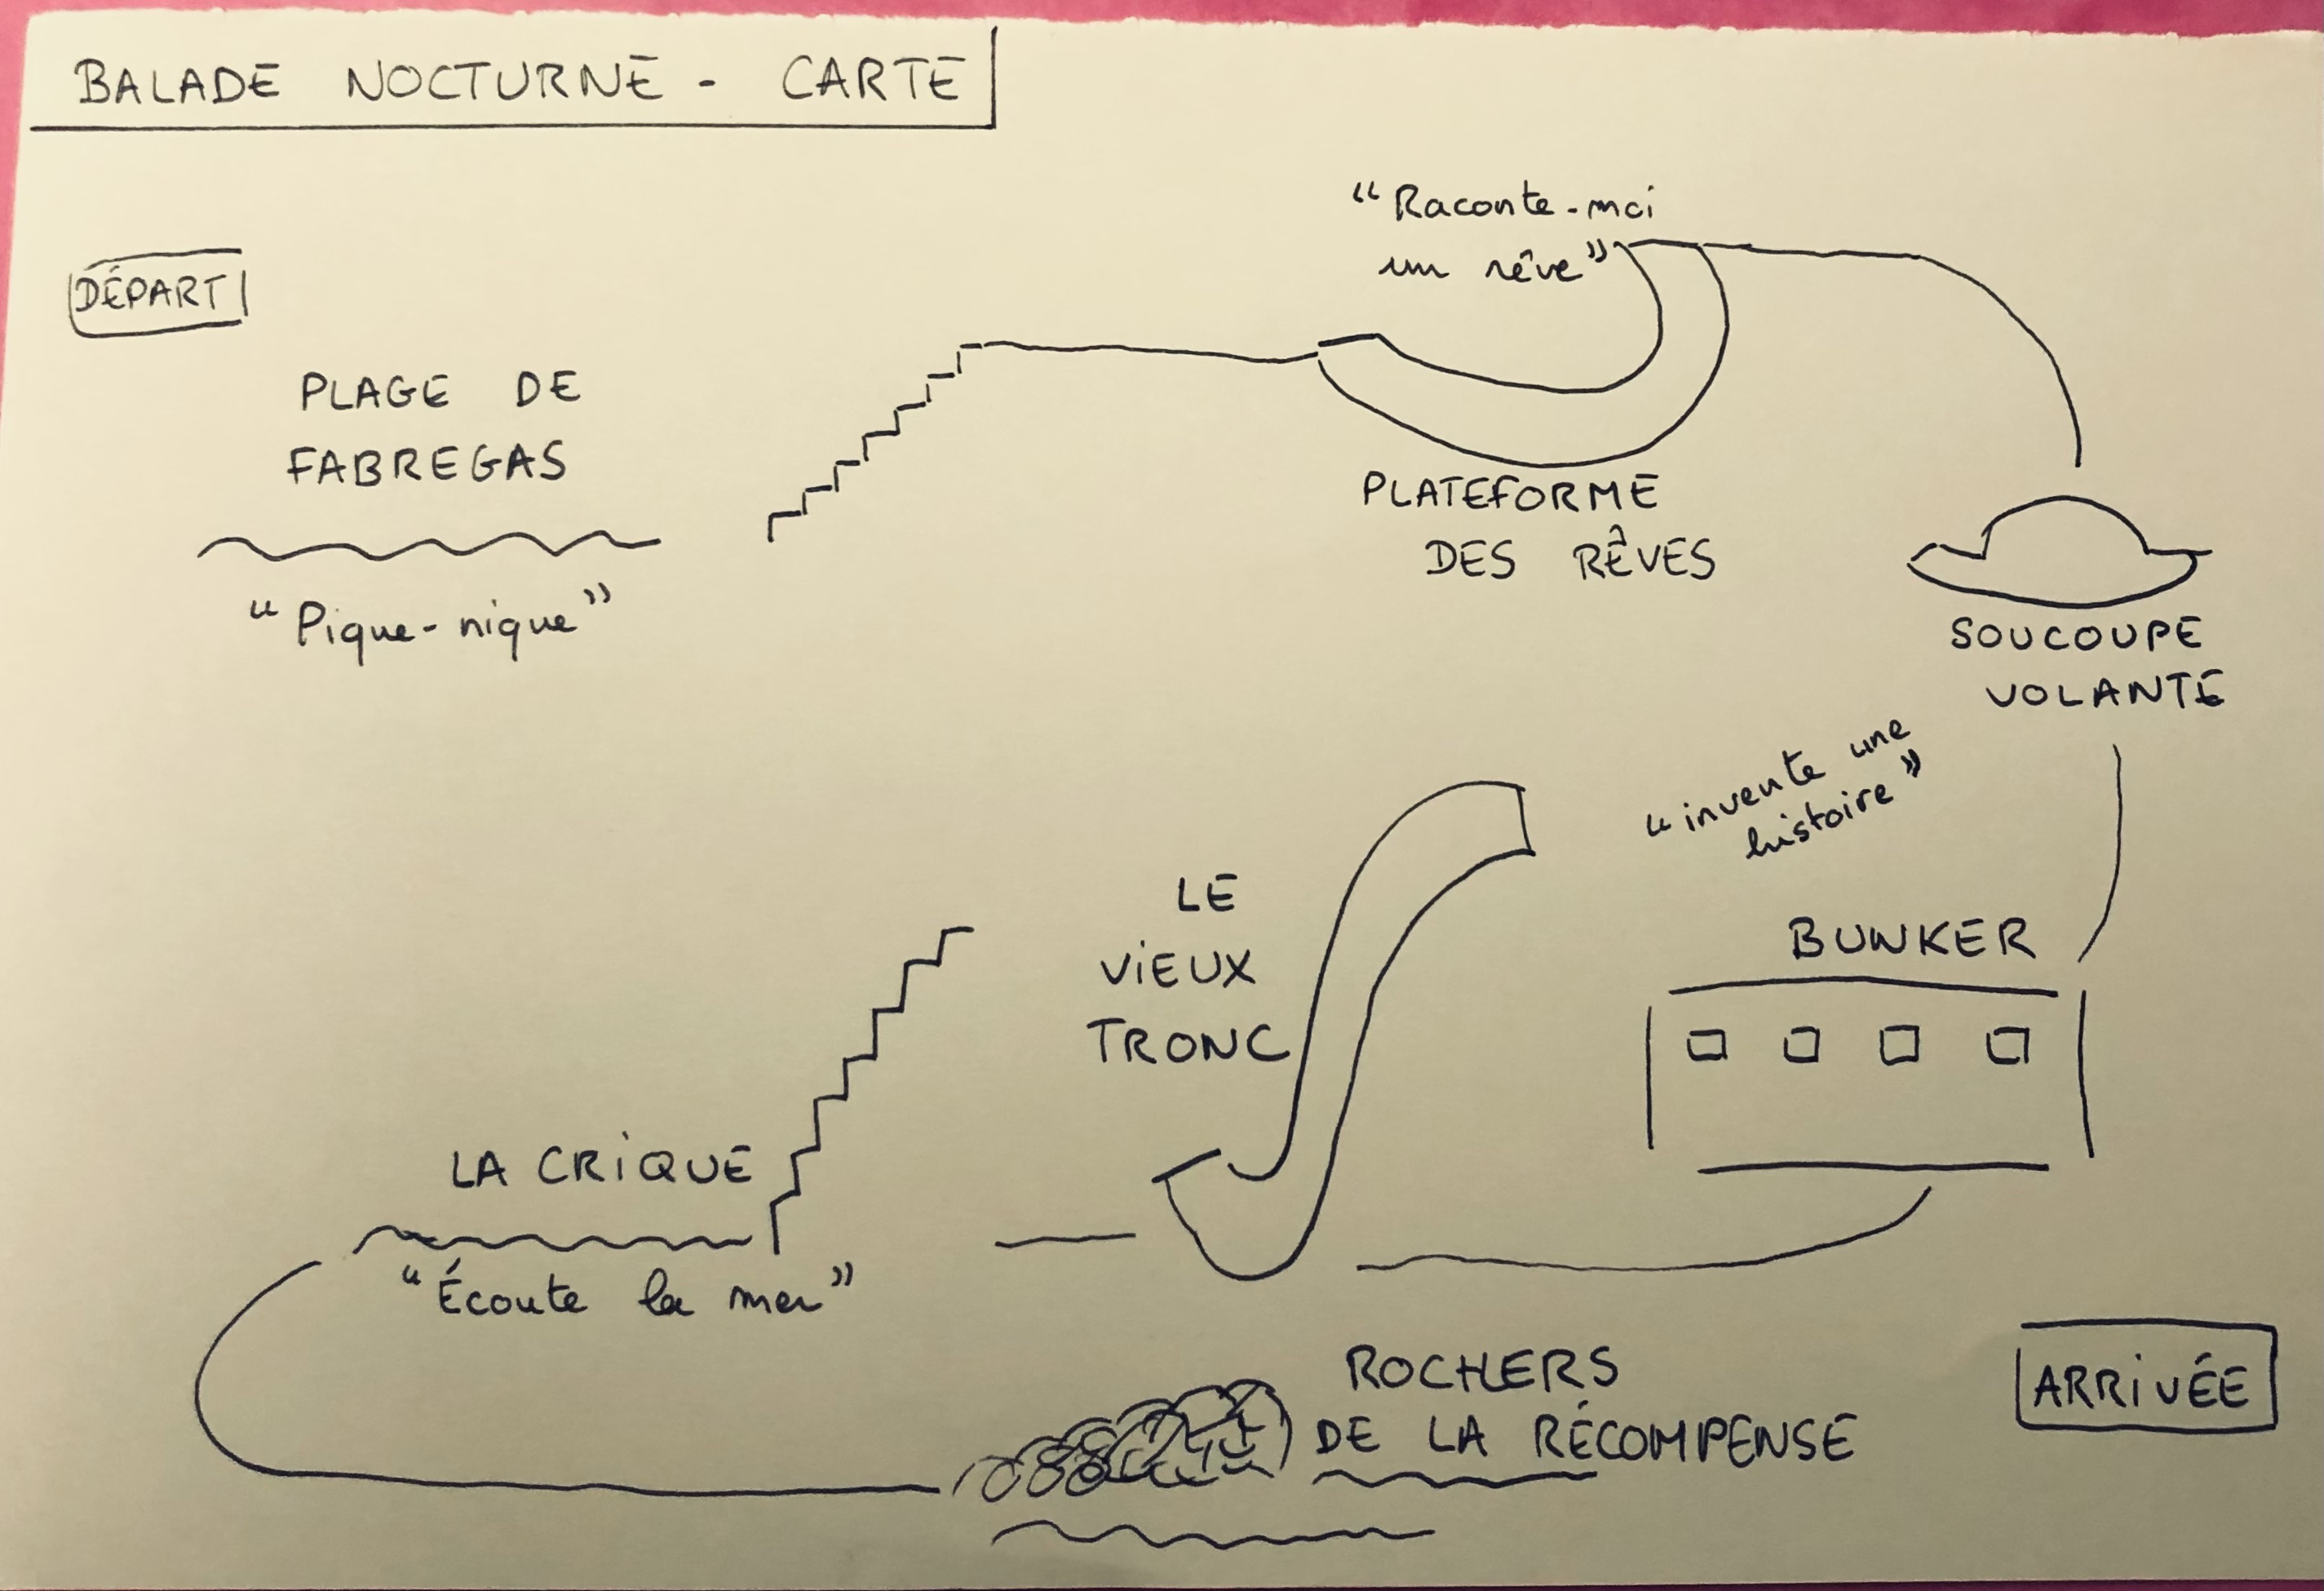 BALADE NOCTURNE - CARTE
DÉPART
PLAGE DE
FABREGAS
"Pique-nique"
"Raconte-moi
un rêve"
PLATEFORME
DES RÊVES
SOUCOUPE
VOLANTE
"invente une
histoire"
BUNKER
LE
VIEUX
TRONC
LA CRIQUE
"Écoute la mer"
ROCHERS
DE LA RÉCOMPENSE
ARRIVÉE